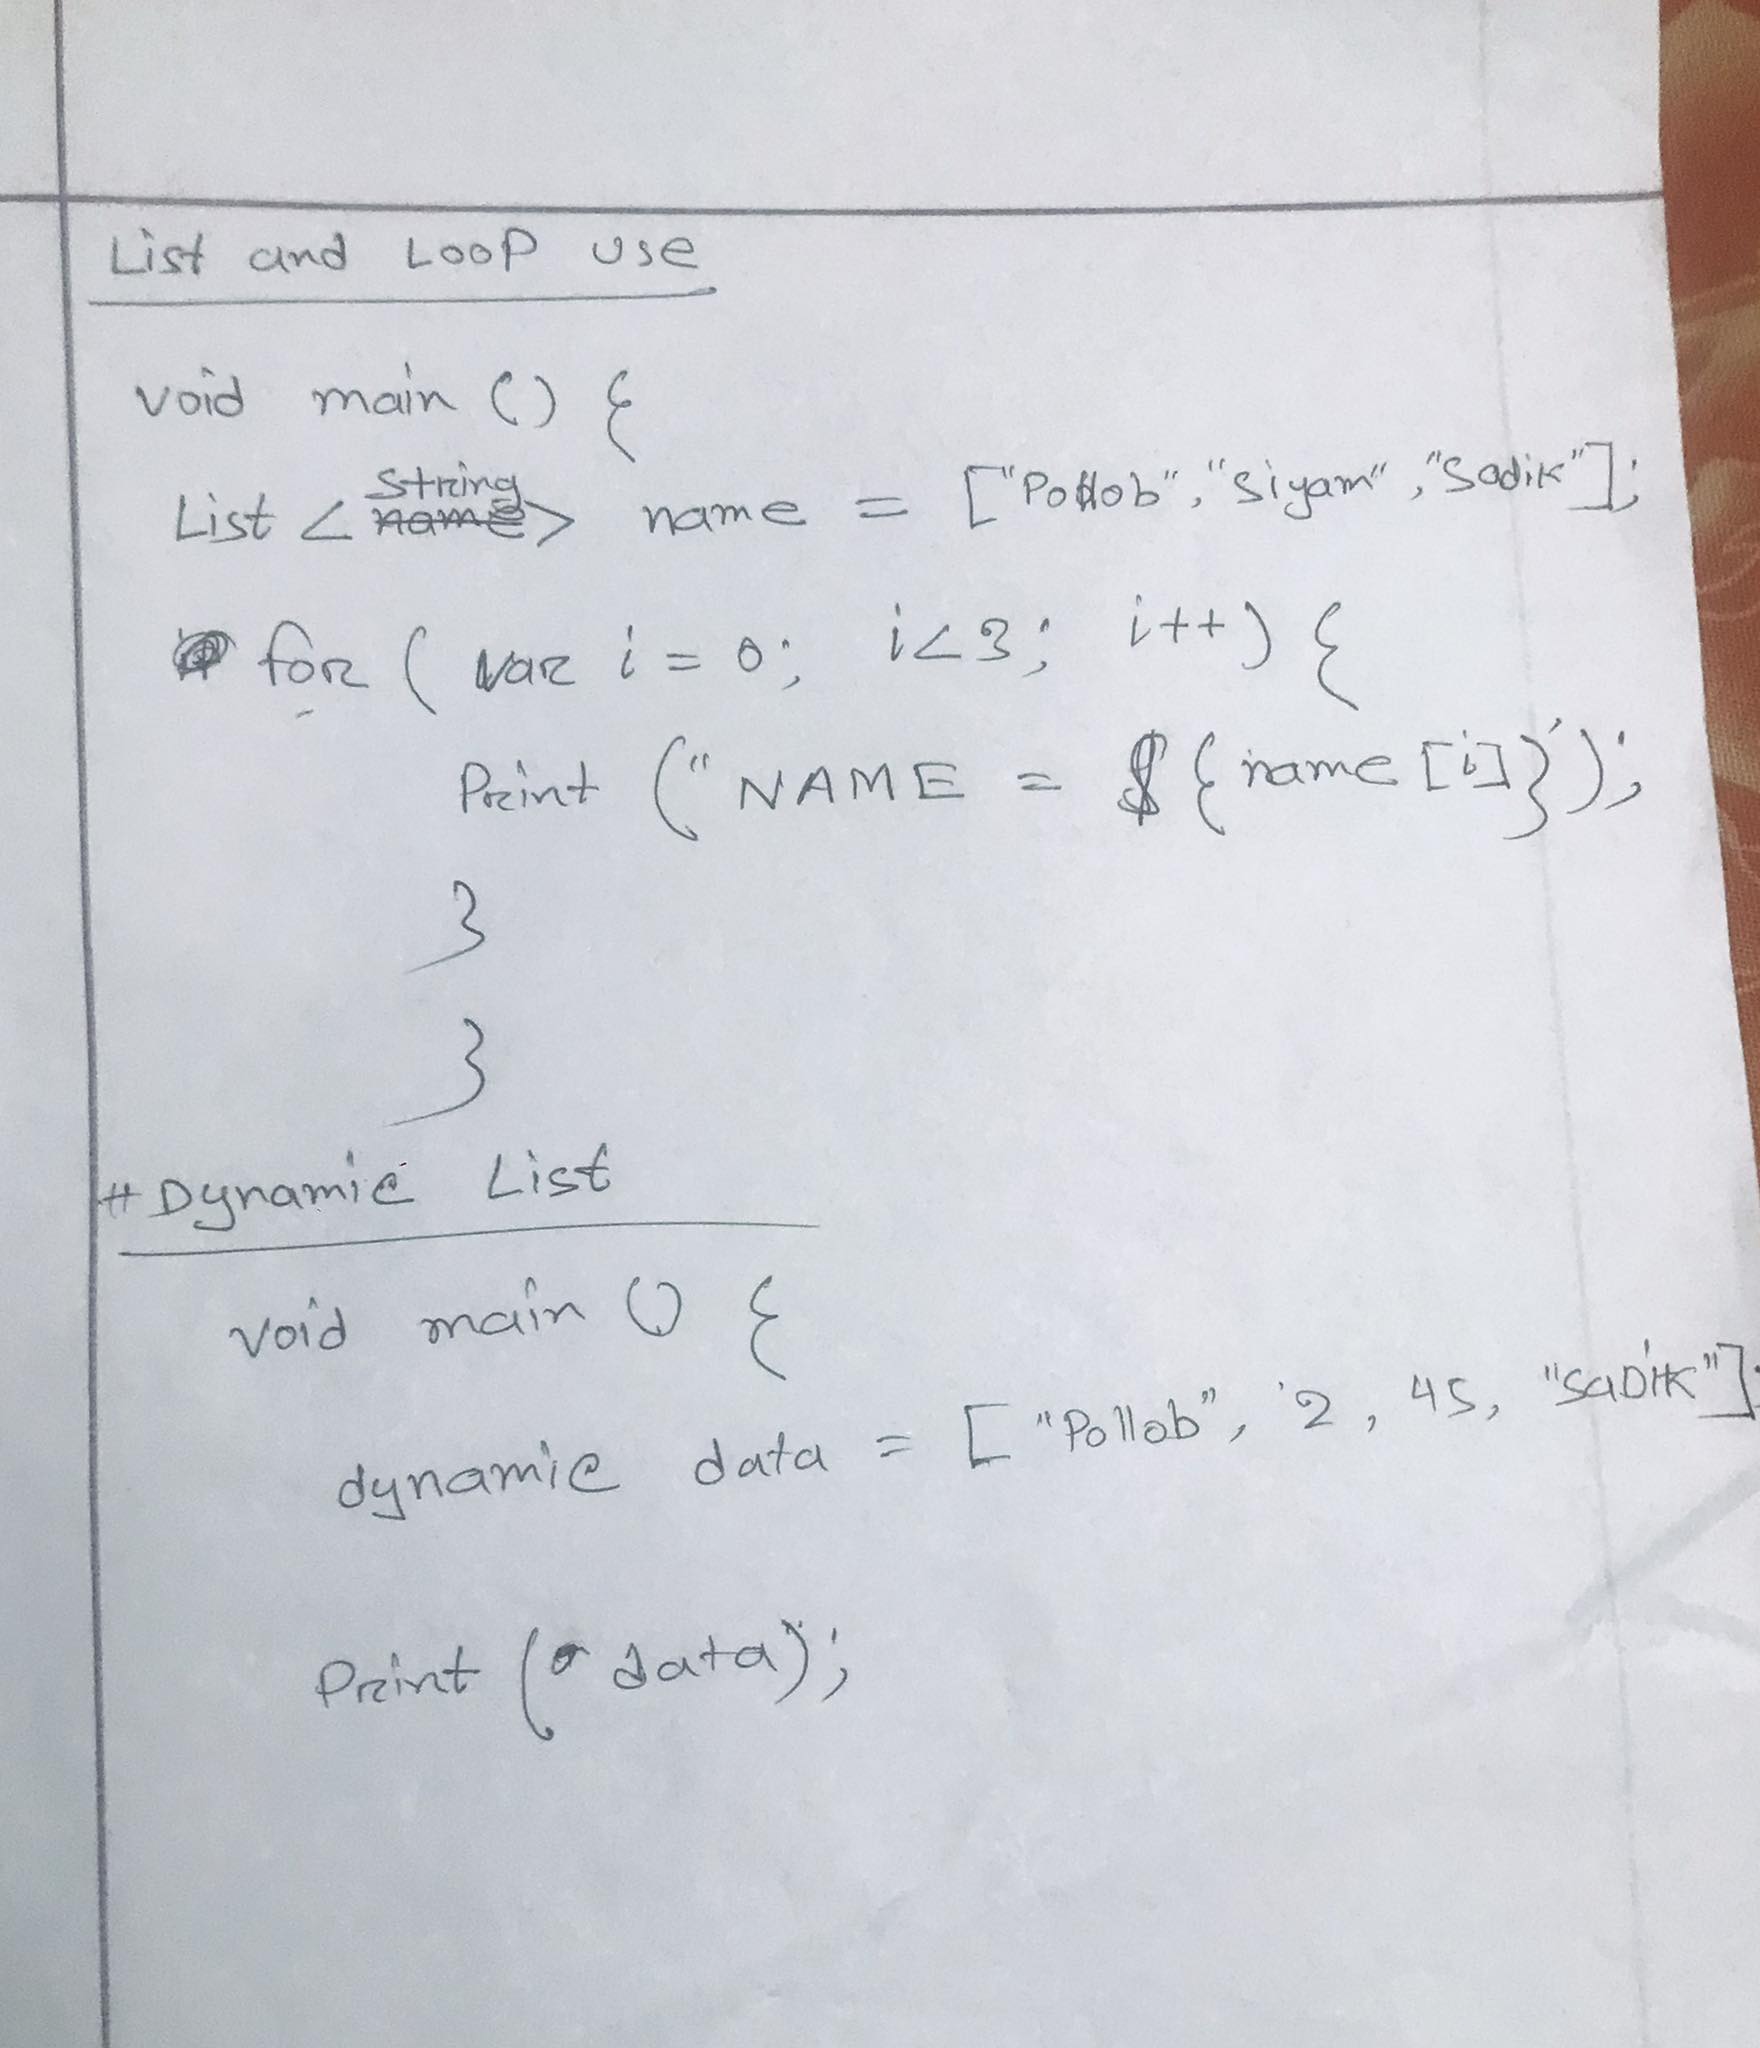 List and Loop use
void main () {
List <String> name = ["Pollob", "Siyam", "Sadik"];
for ( var i = 0; i<3; i++) {
Print ("NAME = ${name [i]}');
}
}
# Dynamic List
void main () {
dynamic data = ["Pollob", '2, 45, "SADIK"];
Print (data);